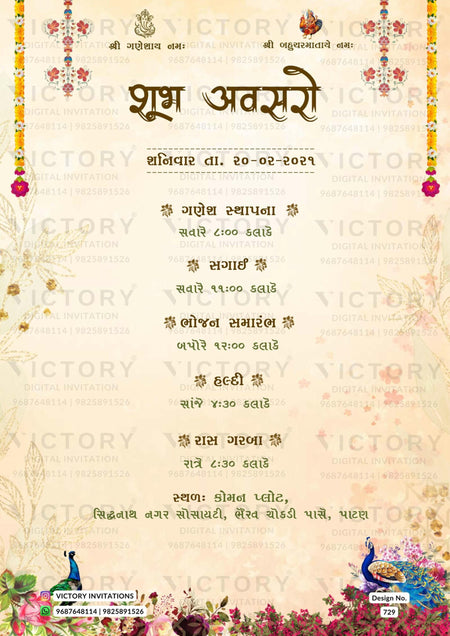 શ્રી ગણેશાય નમઃ
શ્રી બહુચરમાતાયે નમઃ
શુભ અવસરો
શનિવાર તા. ૨૦-૦૨-૨૦૨૧
ગણેશ સ્થાપના
સવારે ૮:૦૦ કલાકે
સગાઈ
સવારે ૧૧:૦૦ કલાકે
ભોજન સમારંભ
બપોરે ૧૨:૦૦ કલાકે
હલ્દી
સાંજે ૪:૩૦ કલાકે
રાસ ગરબા
રાત્રે ૮:૩૦ કલાકે
સ્થળઃ કોમન પ્લોટ,
સિદ્ધનાથ નગર સોસાયટી, ભૈરવ ચોકડી પાસે, પાટણ
VICTORY INVITATIONS
9687648114 | 9825891526
Design No.
729
VICTORY
DIGITAL INVITATION
9687648114 | 9825891526